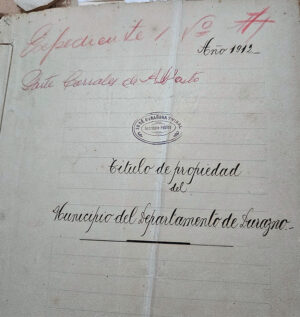 Expediente Nº 7
Año 1912
Parte Corrales de Abasto
Escribano Público
Titulo de propiedad
del
Municipio del Departamento de Durazno.